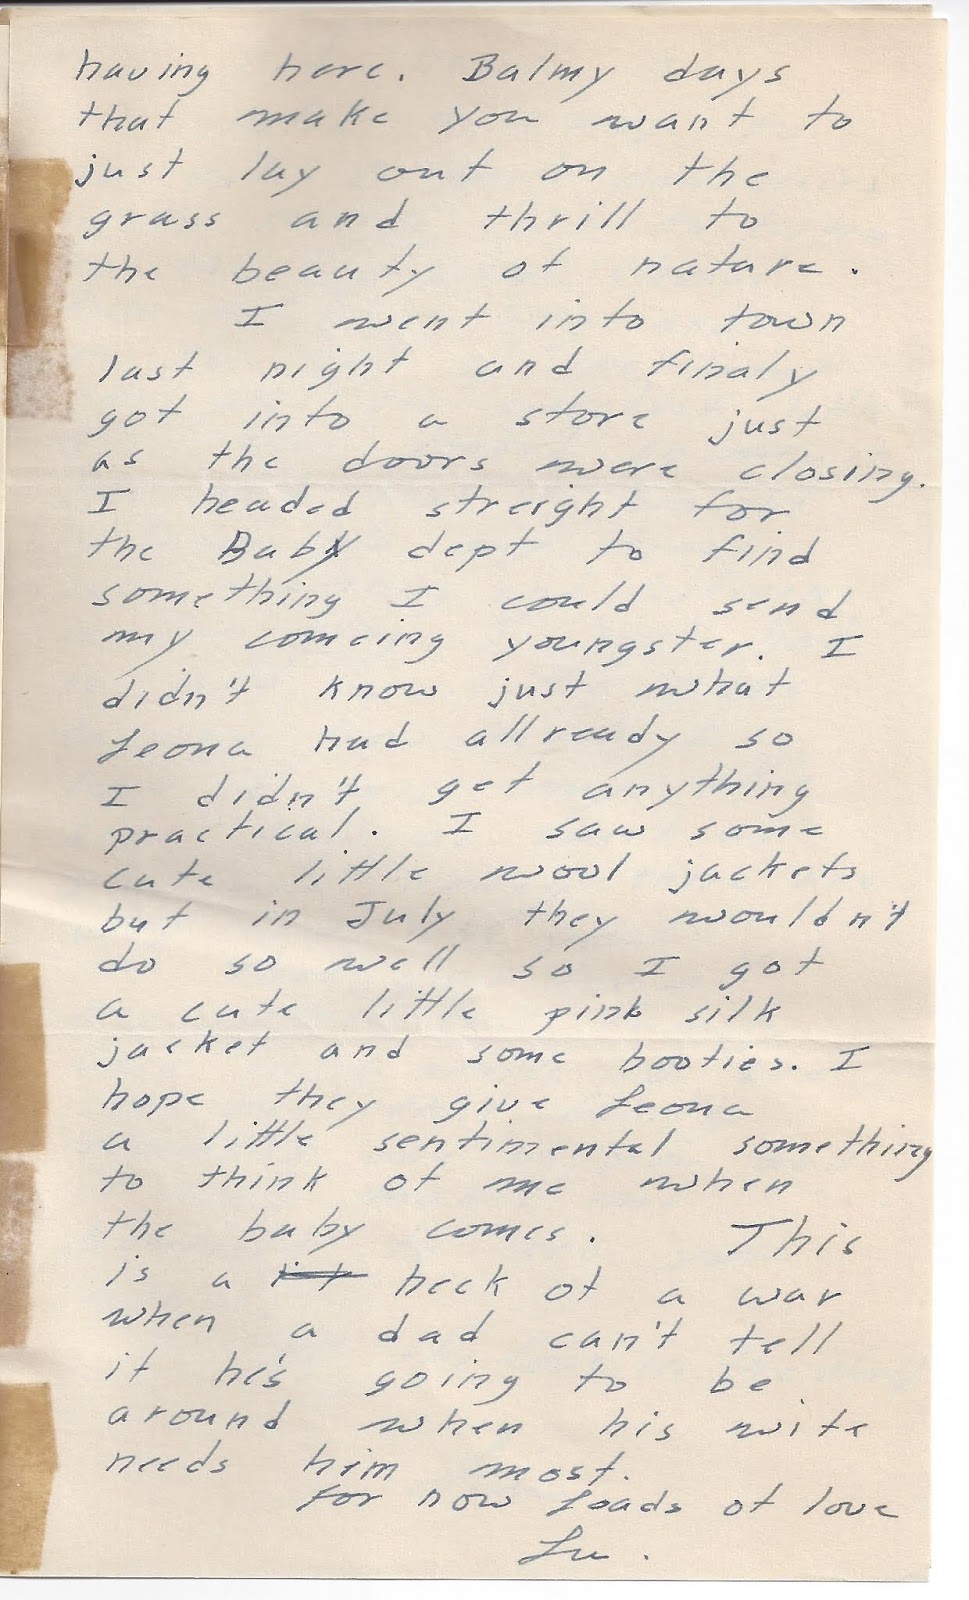 having here. Balmy days
that make you want to
just lay out on the
grass and thrill to
the beauty of nature.
I went into town
last night and finaly
got into a store just
as the doors were closing.
I headed streight for
the Baby dept to find
something I could send
my comeing youngster. I
didn't know just what
Leona had allready so
I didn't get anything
practical. I saw some
cute little wool jackets
but in July they wouldn't
do so well so I got
a cute little pink silk
jacket and some booties. I
hope they give Leona
a little sentimental something
to think of me when
the baby comes. This
is a heck of a war
when a dad can't tell
if he's going to be
around when his wife
needs him most.
For now Loads of love
Lu.